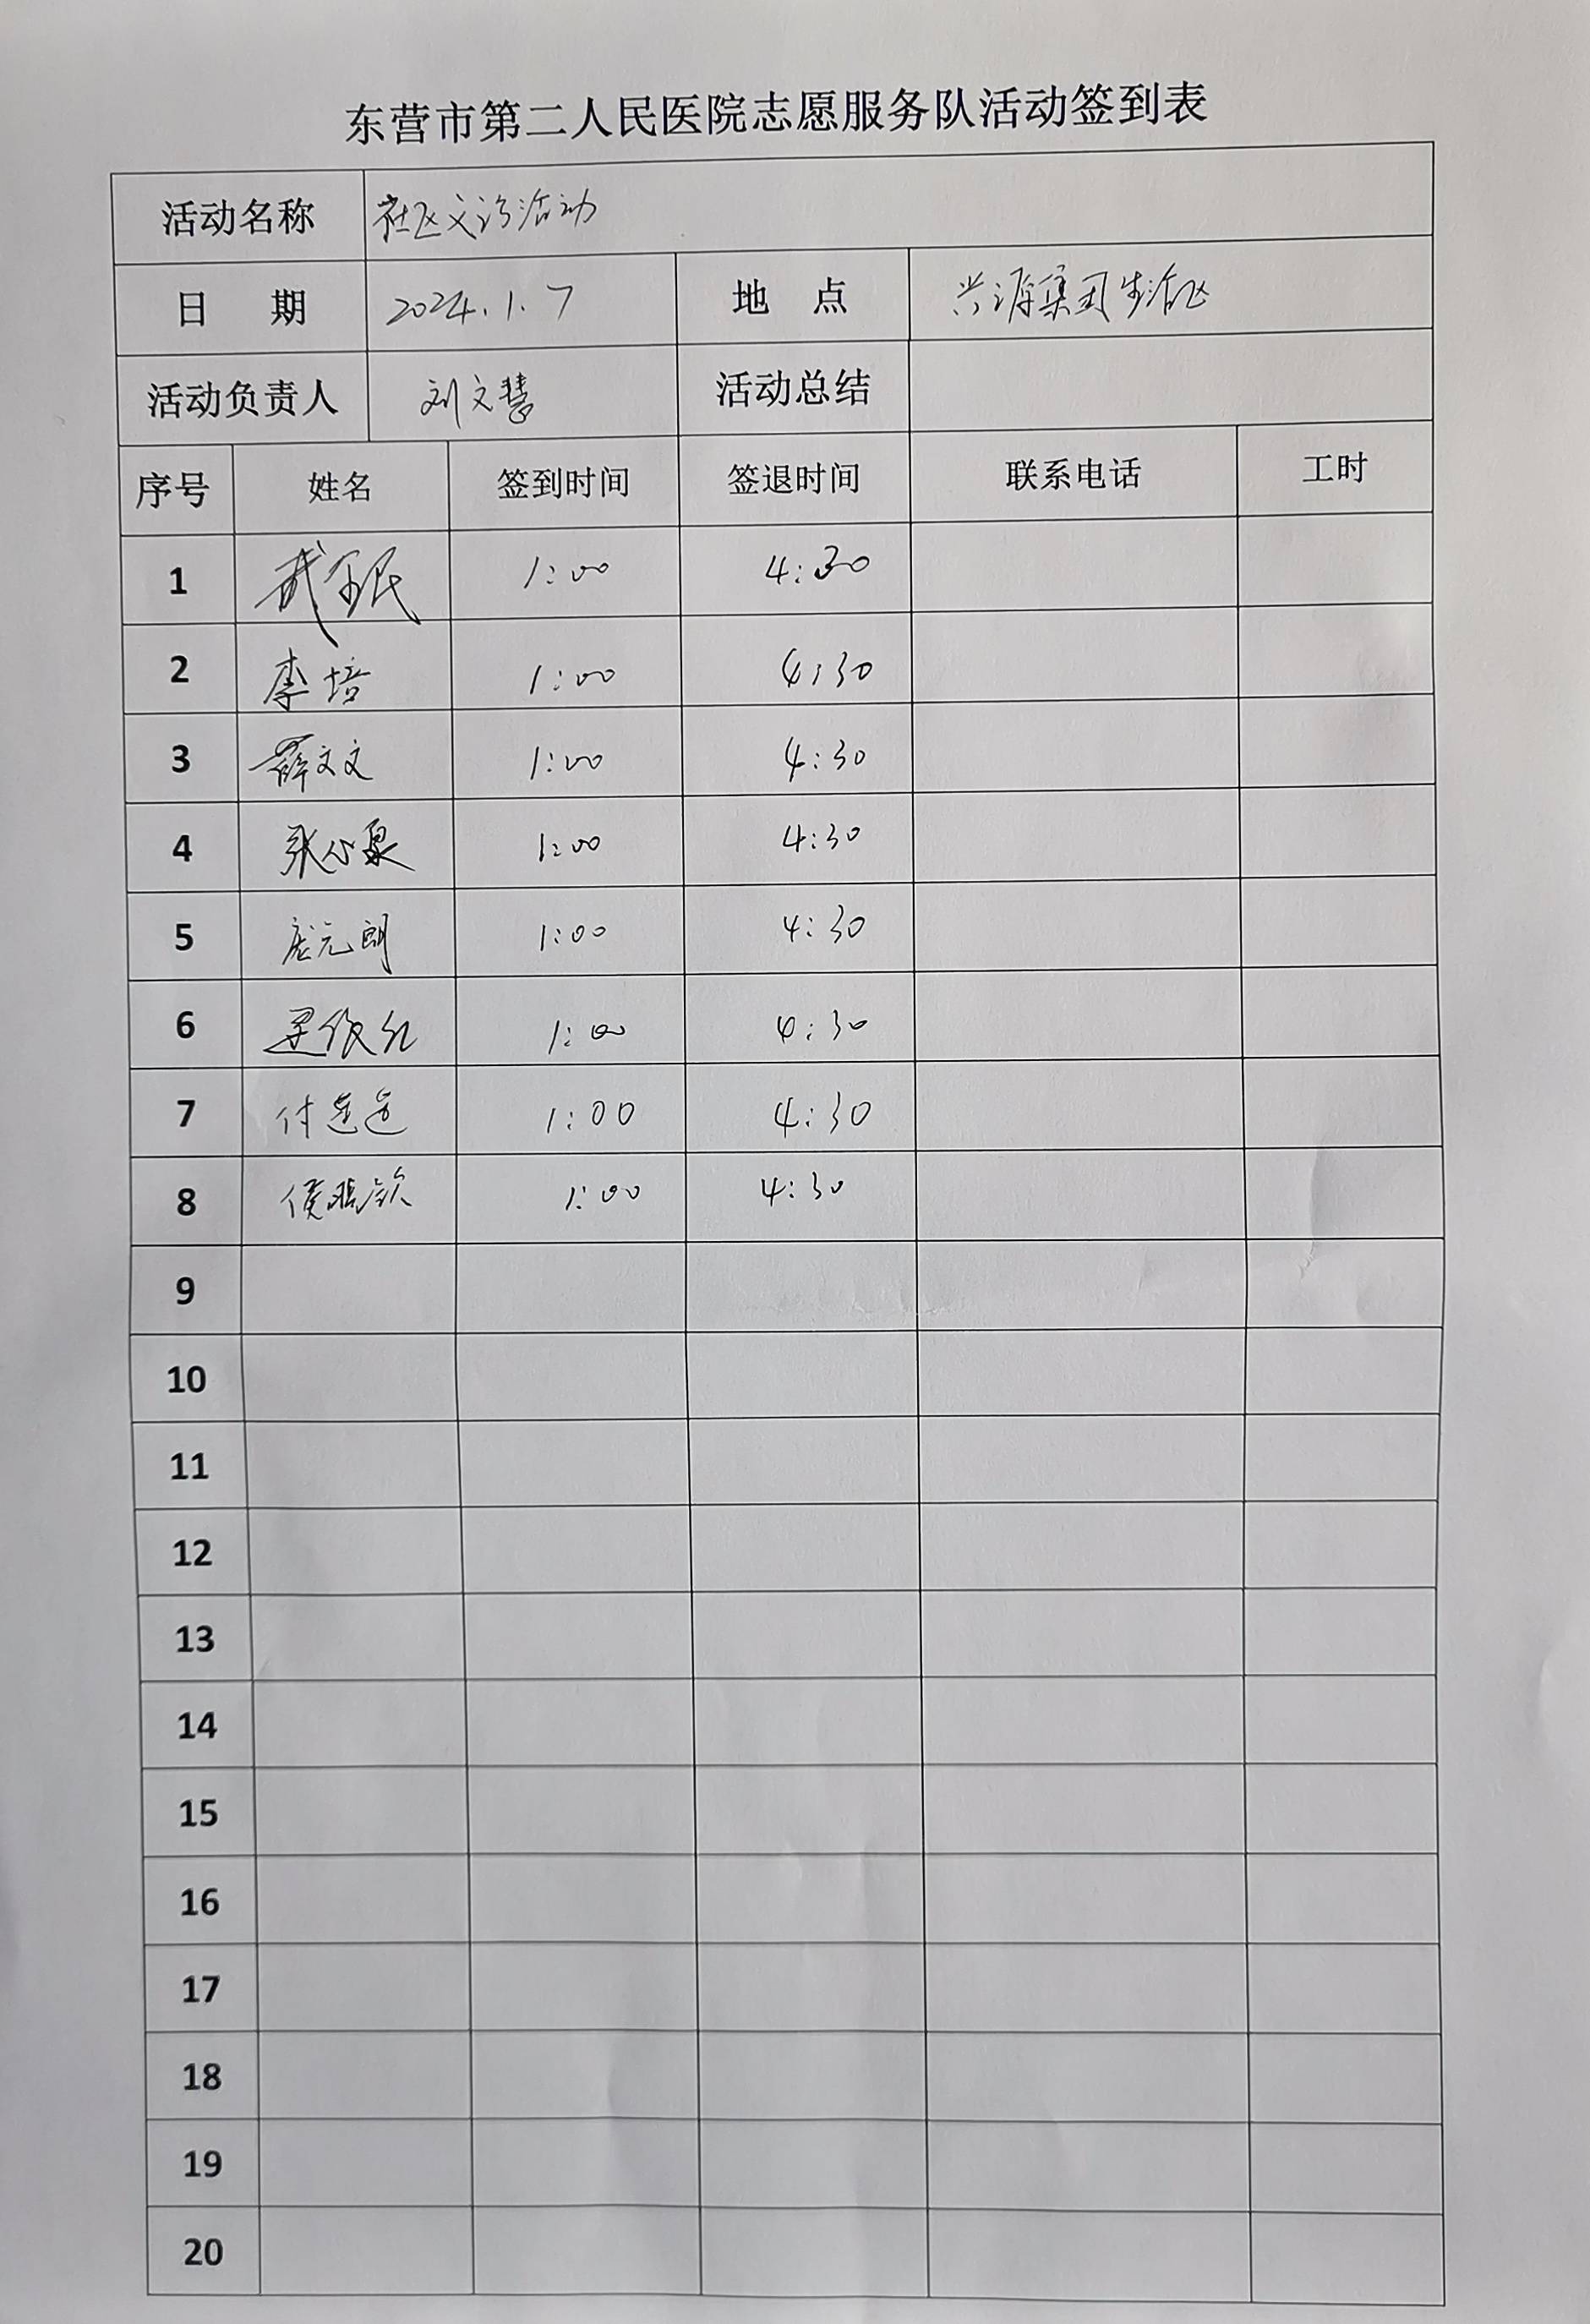 东营市第二人民医院志愿服务队活动签到表
活动名称 社区义诊活动
日 期 2024.1.7 地 点 兴源集团生活区
活动负责人 刘文慧 活动总结
序号 姓名 签到时间 签退时间 联系电话 工时
1 武金民 1:00 4:30
2 李培 1:00 4:30
3 薛文文 1:00 4:30
4 张心泉 1:00 4:30
5 庞元朗 1:00 4:30
6 1:00 4:30
7 付莲莲 1:00 4:30
8 侯 1:00 4:30
9
10
11
12
13
14
15
16
17
18
19
20